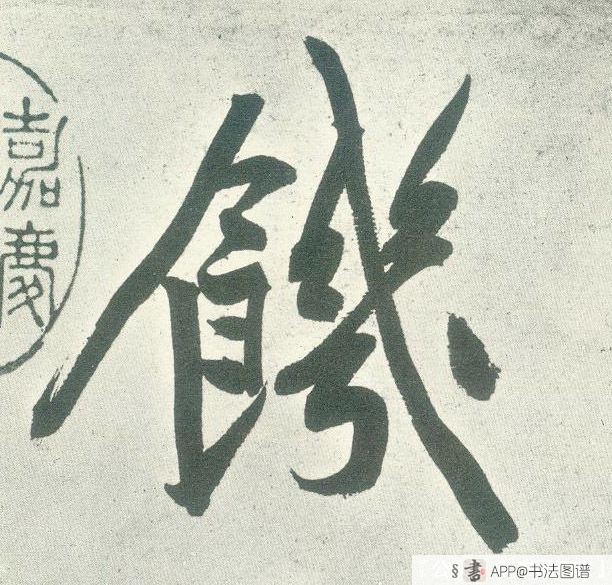 饑
嘉慶
§ 書 APP@书法图谱